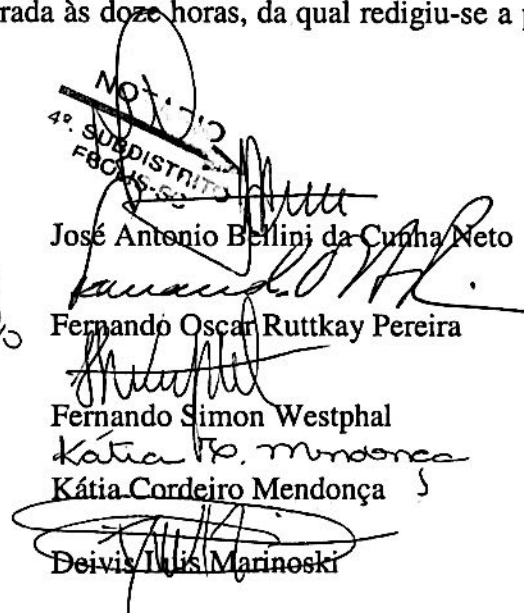 rada às doze horas, da qual redigiu-se a p
4º. SUBDISTRITO
José Antonio Bellini da Cunha Neto
Fernando Oscar Ruttkay Pereira
Fernando Simon Westphal
Kátia Mendonça
Kátia Cordeiro Mendonça
Deivis Luis Marinoski